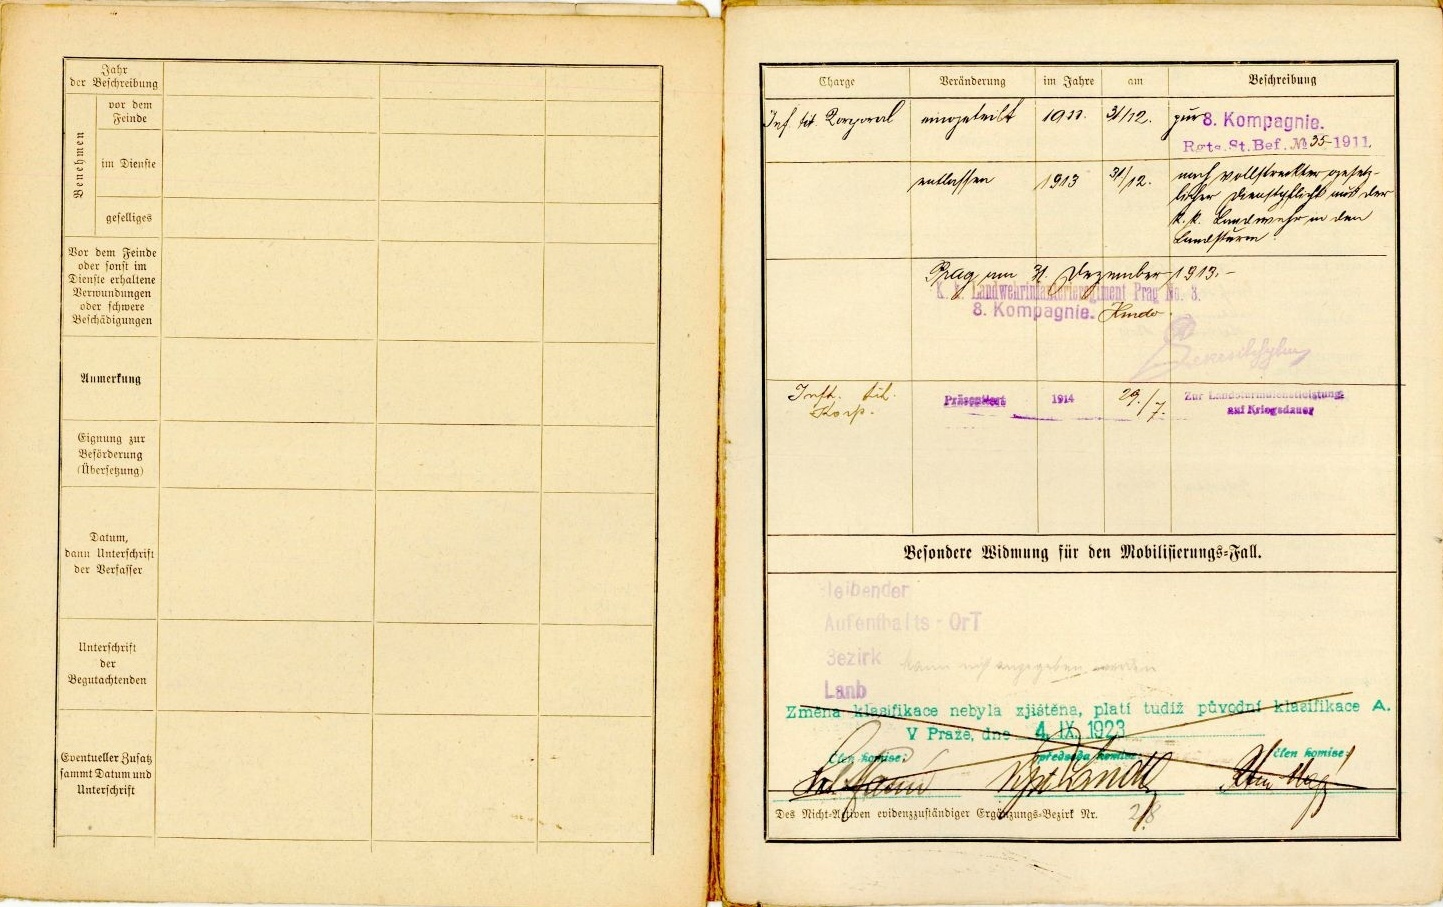 Jahr
der Beschreibung
Benehmen
vor dem
Feinde
im Dienste
geselliges
Vor dem Feinde
oder sonst im
Dienste erhaltene
Verwundungen
oder schwere
Beschädigungen
Anmerkung
Eignung zur
Beförderung
(Übersetzung)
Datum,
dann Unterschrift
der Verfasser
Unterschrift
der
Begutachtenden
Eventueller Zusatz
sammt Datum und
Unterschrift
Charge Veränderung im Jahre am Beschreibung
Inf. tit. Korporal eingeteilt 1911. 31/12. zur 8. Kompagnie.
Rgts. St. Bef. № 35-1911.
entlassen 1913 31/12. nach vollstreckter gesetz-
licher Dienstpflicht aus der
k. k. Landwehr in den
Landsturm.
Prag am 31. Dezember 1913.-
K. k. Landwehrinfanterieregiment Prag No. 8.
8. Kompagnie. Kmdo.
Inft. tit. Präsentiert 1914 29./7. Zur Landsturmdienstleistung
Korp. auf Kriegsdauer
Besondere Widmung für den Mobilisierungs-Fall.
leibender
Aufenthalts-OrT
Bezirk kann nicht angegeben werden
Lanb
Změna klasifikace nebyla zjištěna, platí tudíž původní klasifikace A.
V Praze, dne 4. IX. 1923
Člen komise: předseda komise: Člen komise:
Des Nicht-Aktiven evidenzzuständiger Ergänzungs-Bezirk Nr. 2/8